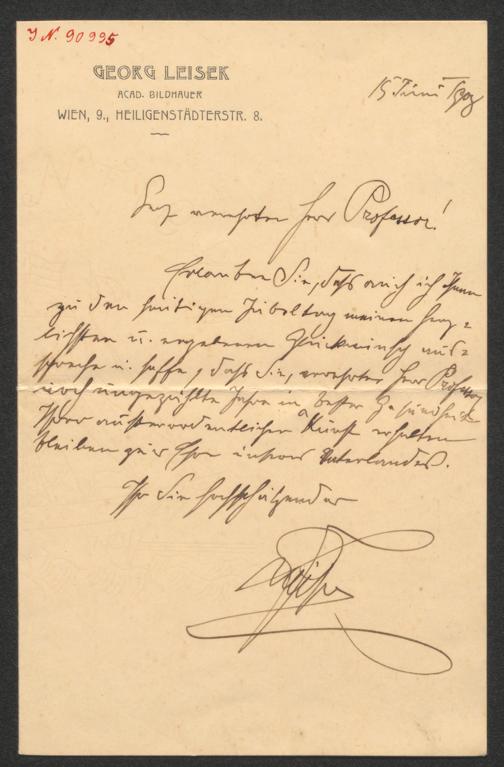 J. N. 90995
GEORG LEISEK
ACAD. BILDHAUER
WIEN, 9., HEILIGENSTÄDTERSTR. 8.
15 Juni
Sehr verehrter Herr Professor!
Erlauben Sie, daß auch ich Ihnen
zu dem heutigen Jubeltag meinen herz-
lichsten u. ergebenen Glückwunsch aus-
spreche u. hoffe, daß Sie, verehrter Herr Professor
noch ungezählte Jahre in bester Gesundheit
Ihrer außerordentlichen Kunst erhalten
bleiben zur Ehre unseres Vaterlandes.
Ihr Sie hochschätzender